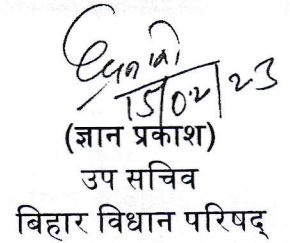 15/02/23
(ज्ञान प्रकाश)
उप सचिव
बिहार विधान परिषद्